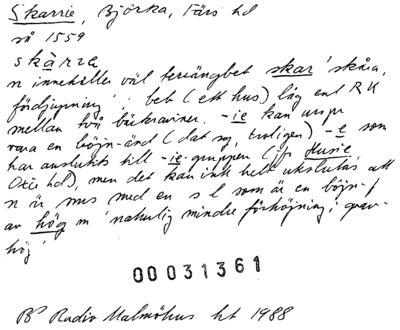 Skarrie, Björka, Färs hd
så 1559
skàrze
n innehåller väl terrängbet skar 'skåra,
fördjupning'. beb (ett hus) låg enl RK
mellan två bäckraviner. -ie kan urspr
vara en böjn-änd (dat sg, troligen) -e som
har anslutits till -ie-gruppen (jfr
Oxie hd), men det kan inte helt uteslutas att
n är sms med en s l som är en böjn-f
av hög m 'naturlig mindre förhöjning; grav-
hög'
00031361
BP Radio Malmöhus ht 1988